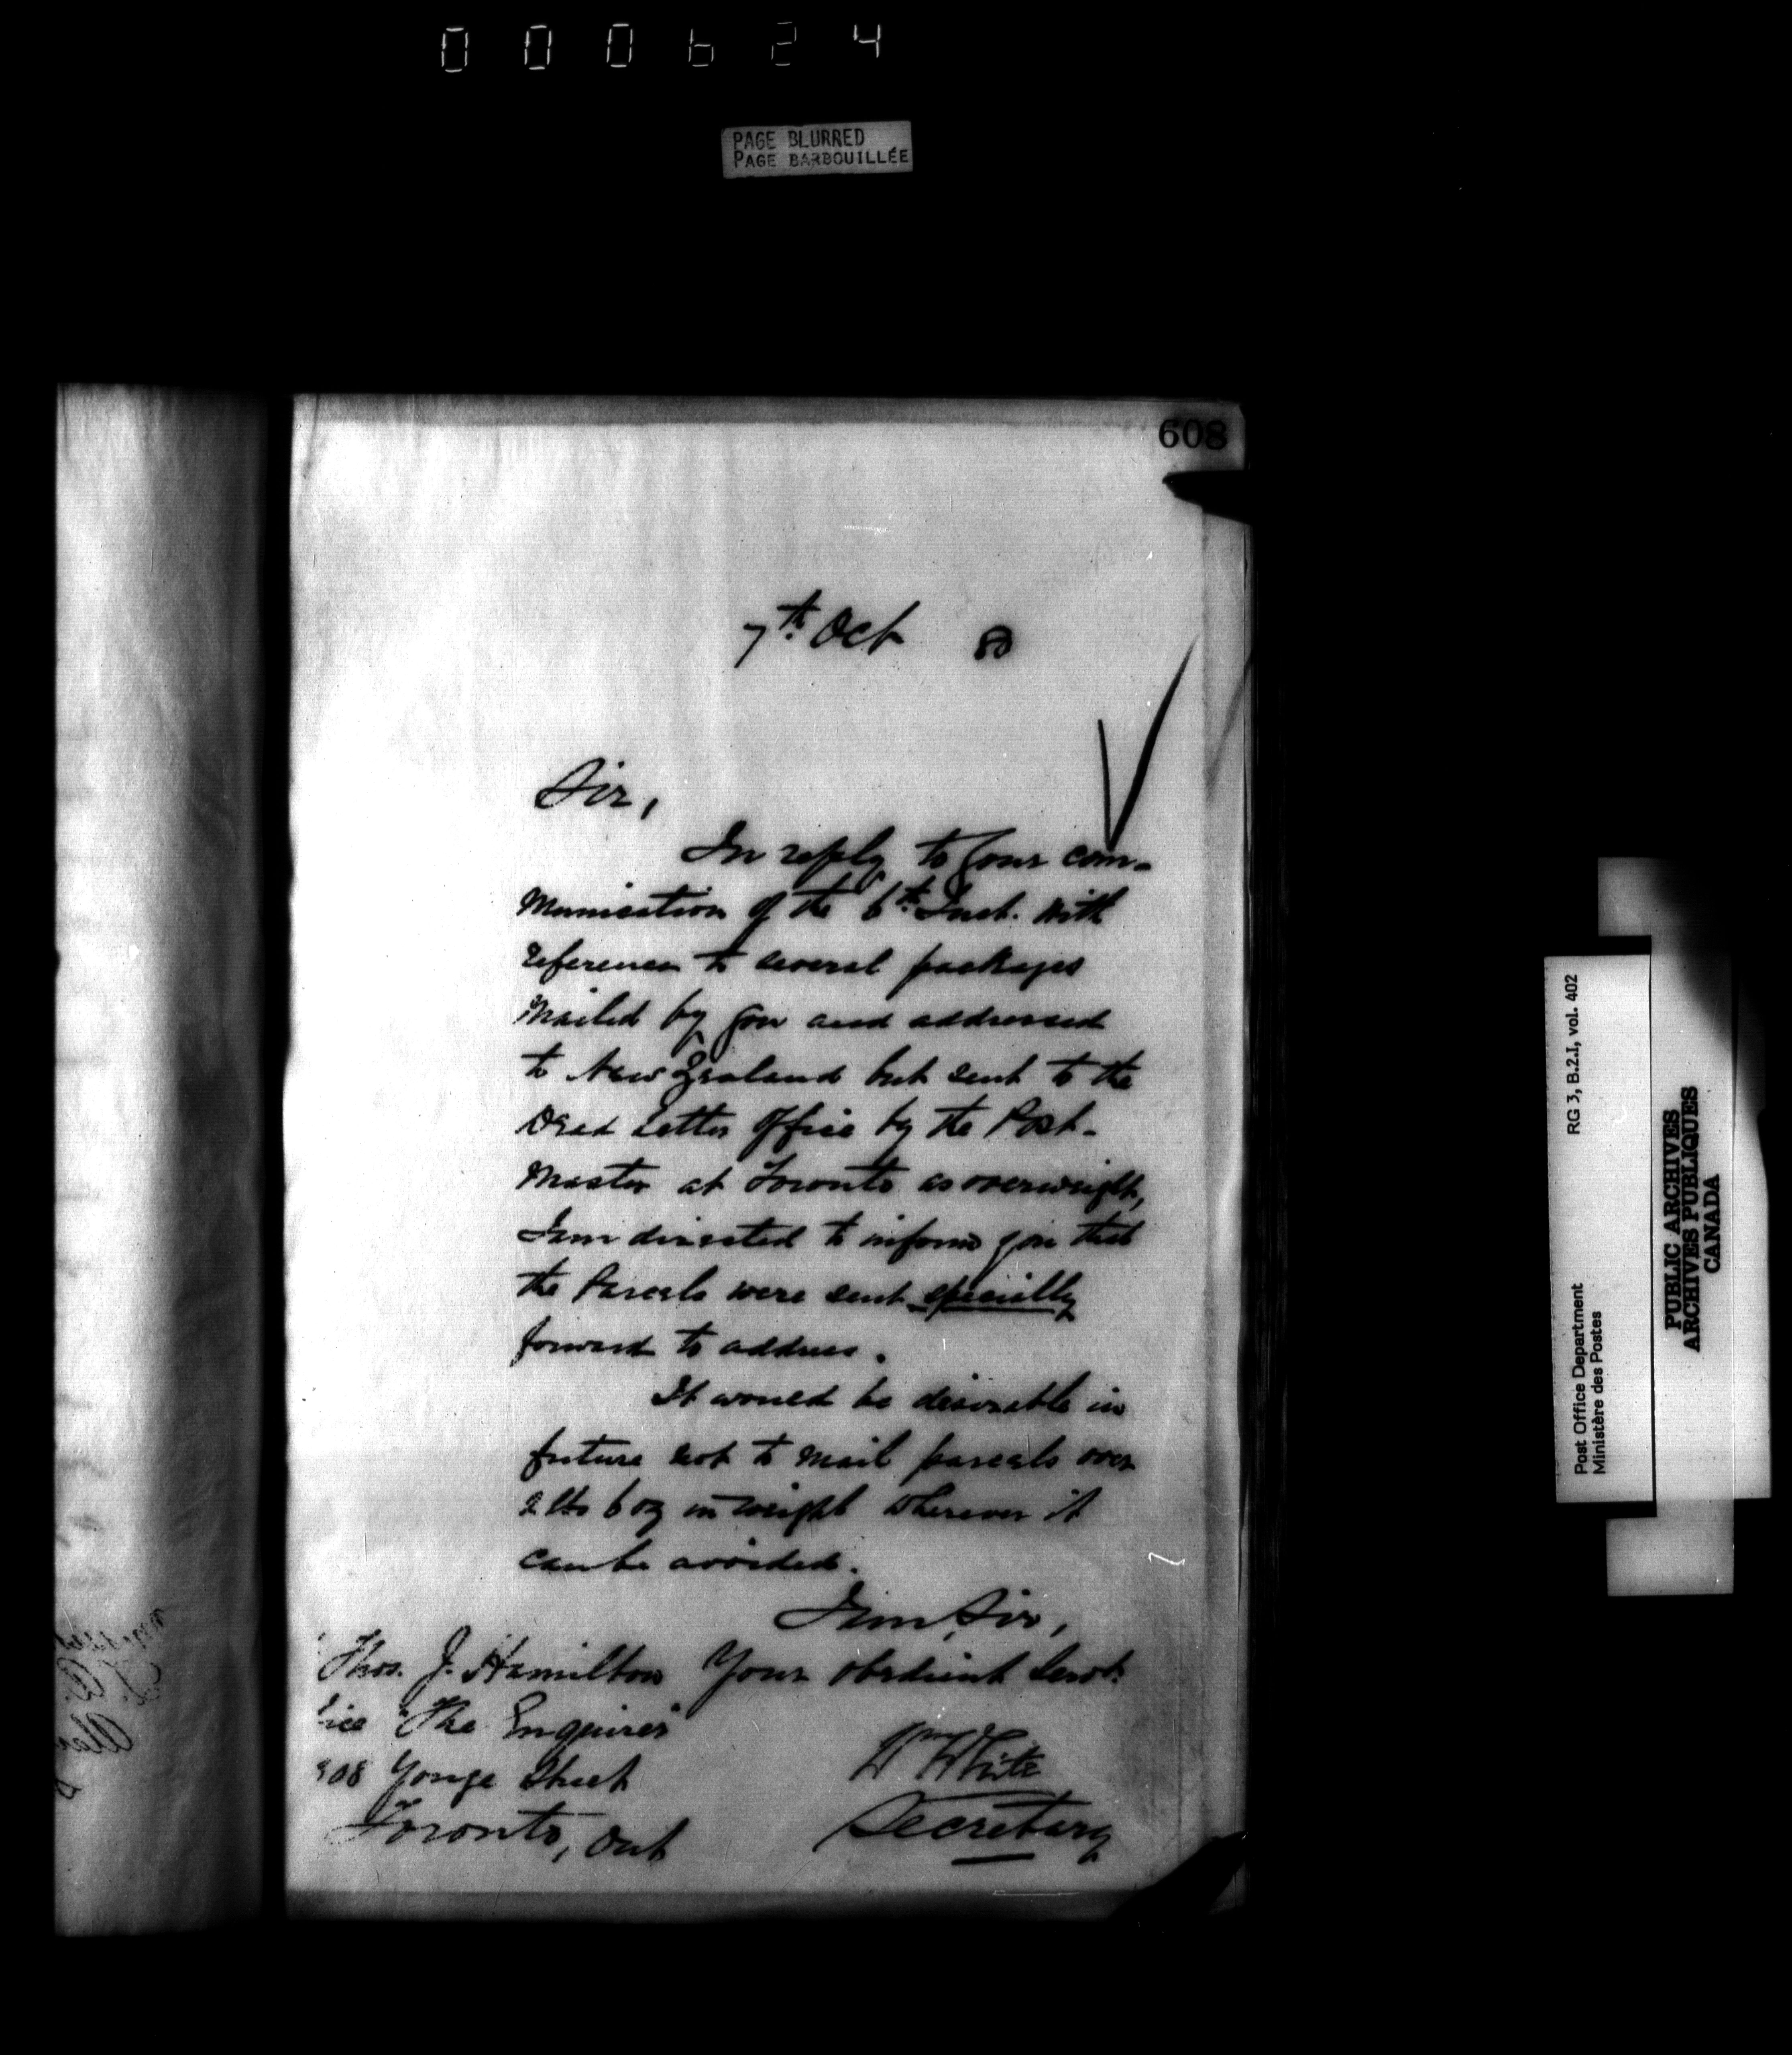 000624
PAGE BLURRED
PAGE BARBOUILLÉE
608
7th Oct 80
Sir,
In reply to your com-
munication of the 6th Inst. with
reference to several packages
mailed by you and addressed
to New Zealand but sent to the
Dead Letter Office by the Post-
master at Toronto as overweight,
I am directed to inform you that
the Parcels were sent specially
forward to address.
It would be desirable in
future not to mail parcels over
2 lbs 6 oz in weight wherever it
can be avoided.
I am, Sir,
Your obedient Servt.
Thos. J. Hamilton
"The Enquirer"
Yonge Street
Toronto, Ont
W White
Secretary
RG 3, B.2.I, vol. 402
Post Office Department
Ministère des Postes
PUBLIC ARCHIVES
ARCHIVES PUBLIQUES
CANADA